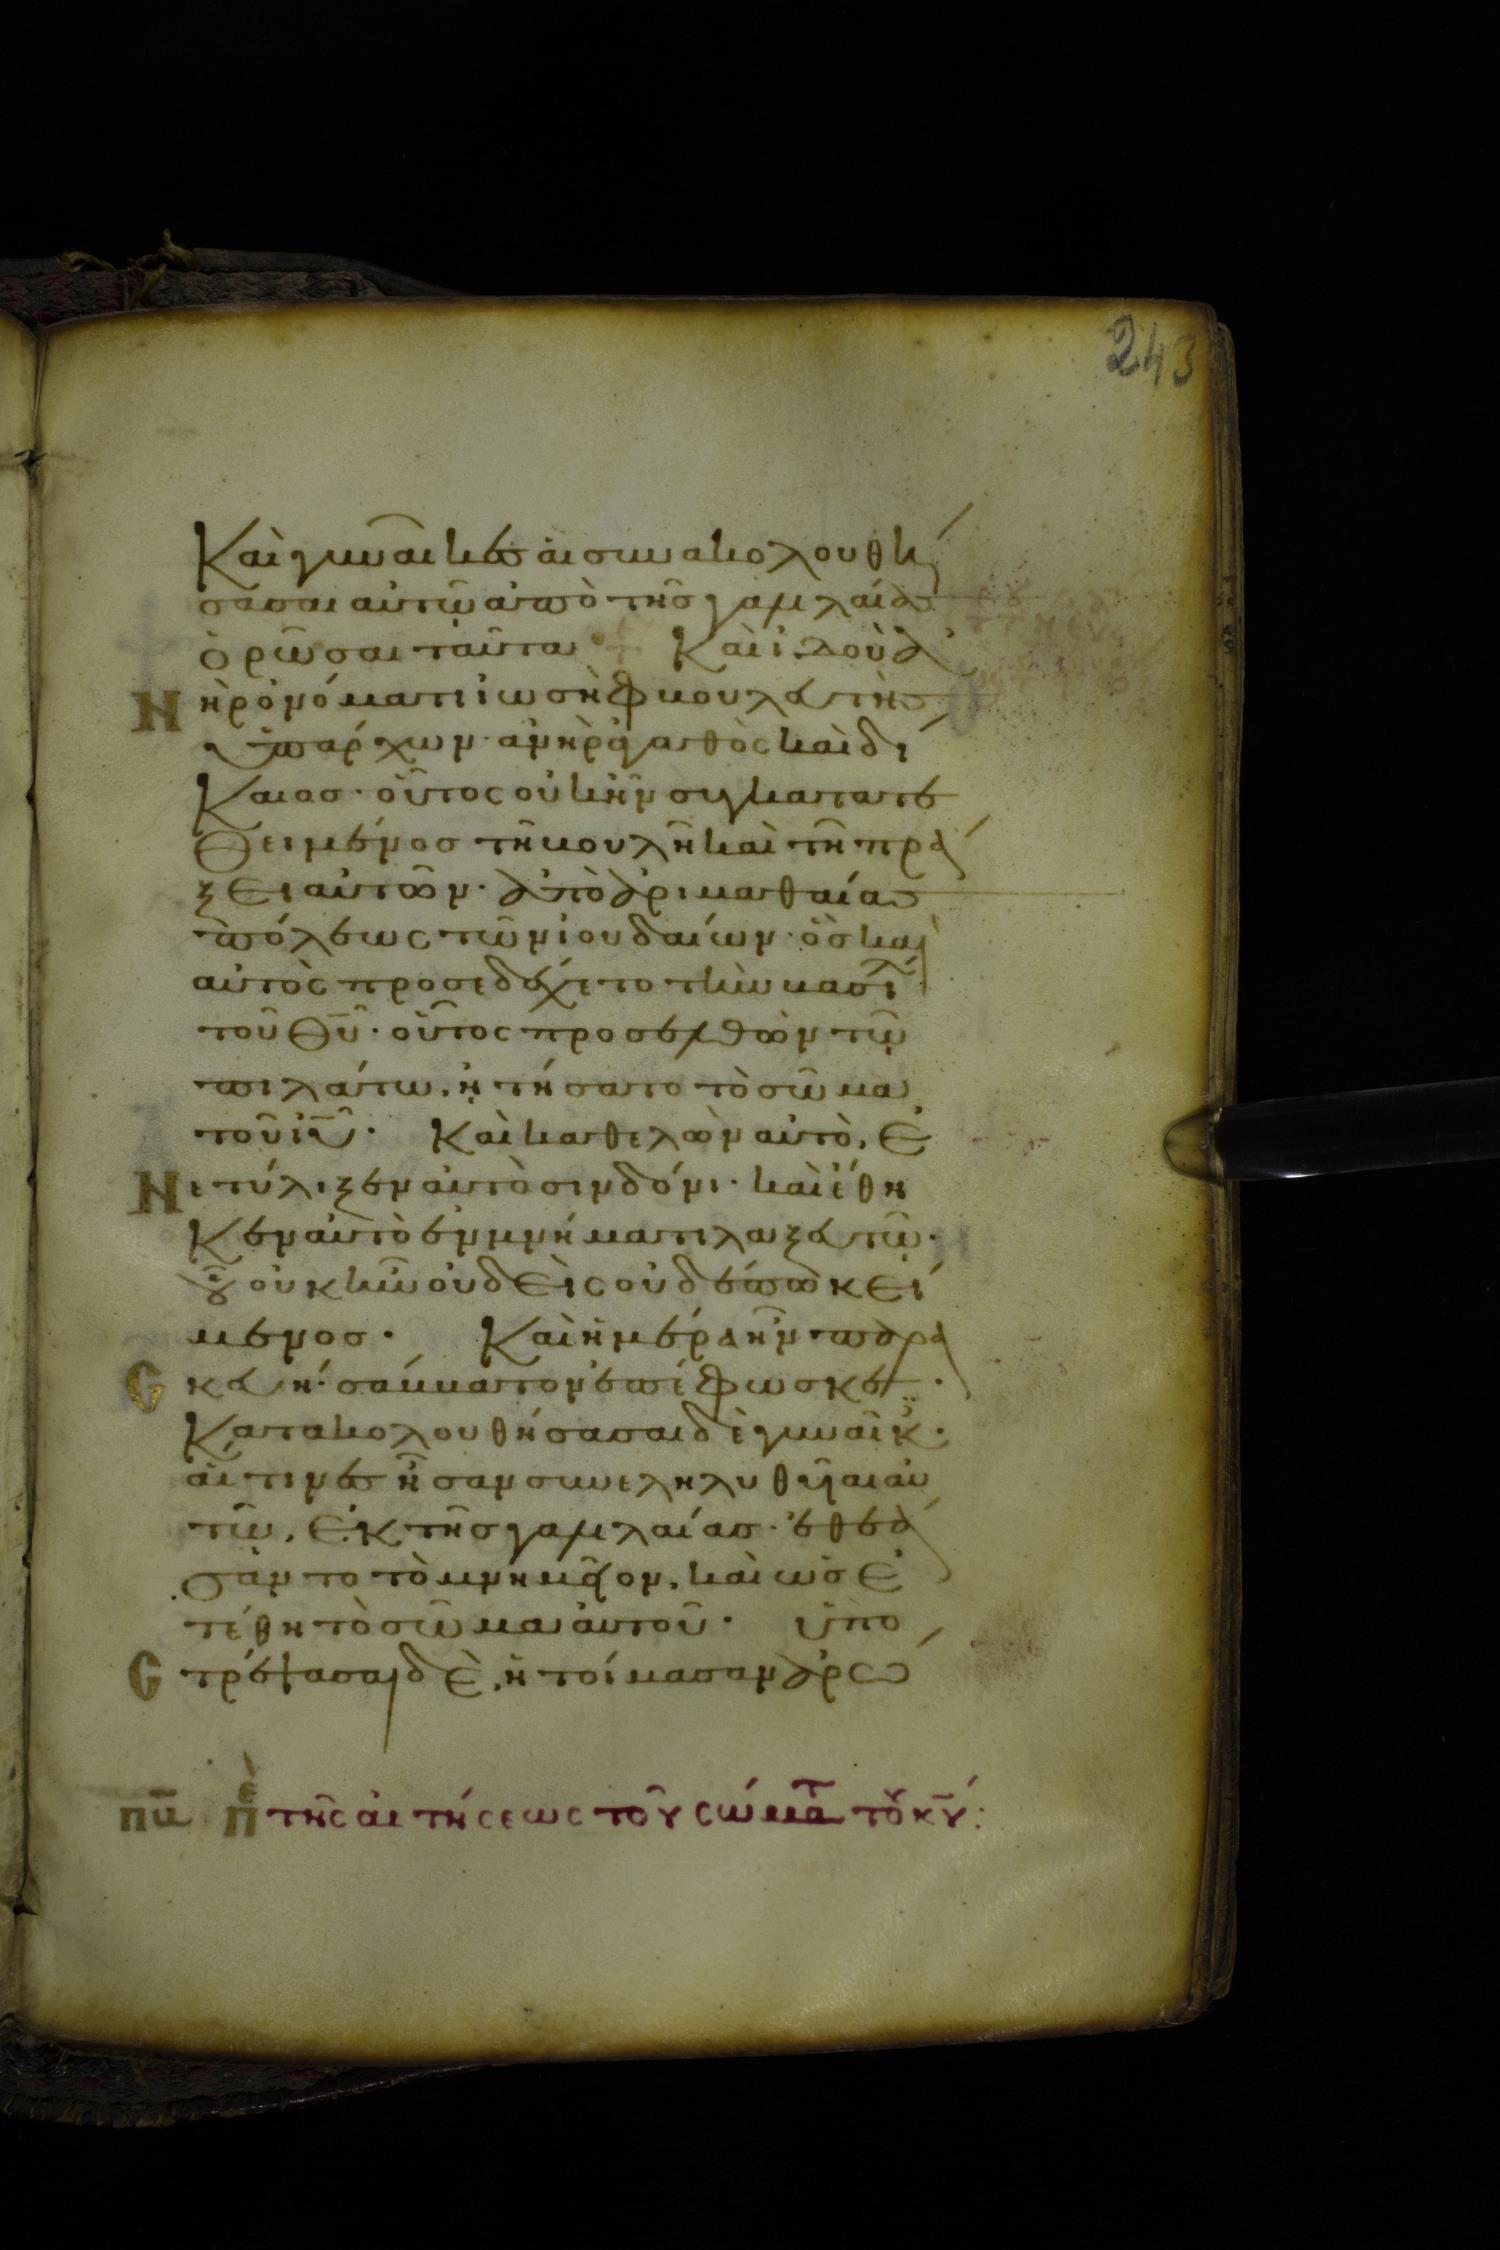 243
Καὶ γυναῖκες αἱ συνακολουθή
σασαι αὐτῶ ἀπὸ τῆς γαλιλαίασ
ὁρῶσαι ταῦτα + Καὶ ἰδοὺ ἀ
Ν
νὴρ ὀνόματι ἰωσὴφ βουλευτὴσ
ὑπάρχων· ἀνὴρ ἀγαθὸς καὶ δί
Καιοσ· οὗτος οὐκ ἦν συγκατατε
Θειμένοσ τῆ βουλῆ καὶ τῆ πρά
ξει αὐτῶν· ἀπὸ ἀριμαθαίασ
πόλεως τῶν ἰουδαίων· ὃσ καὶ
αὐτὸς προσεδέχετο τὴν βασιλ
τοῦ Θῦ· οὗτος προσελθὼν τῶ
πιλάτω, ἠτήσατο τὸ σῶμα
τοῦ ἰῦ· Καὶ καθελὼν αὐτὸ, ἐ
Ν
νετύλιξεν αὐτὸ σινδόνι· καὶ ἔθη
Κεν αὐτὸ ἐν μνήματι λαξευτῶ·
οὗ οὐκ ἦν οὐδεὶς οὐδέπω κεί
μενοσ· Καὶ ἡμέρα ἦν παρα
Ϲ
κευή· σάββατον ἐπέφωσκε·
Κατακολουθήσασαι δὲ γυναῖκ·
αἵτινες ἦσαν συνεληλυθυῖαι αὐ
τῶ, ἐκ τῆσ γαλιλαίασ· ἐθεά
σαντο τὸ μνημεῖον, καὶ ὡσ ἐ
τέθη τὸ σῶμα αὐτοῦ· ὑπο
Ϲ
τρέψασαι δὲ, ἡτοίμασαν ἀρω
πμ πε τῆς αἰτήσεως τοῦ σώματ τοῦ κυ: